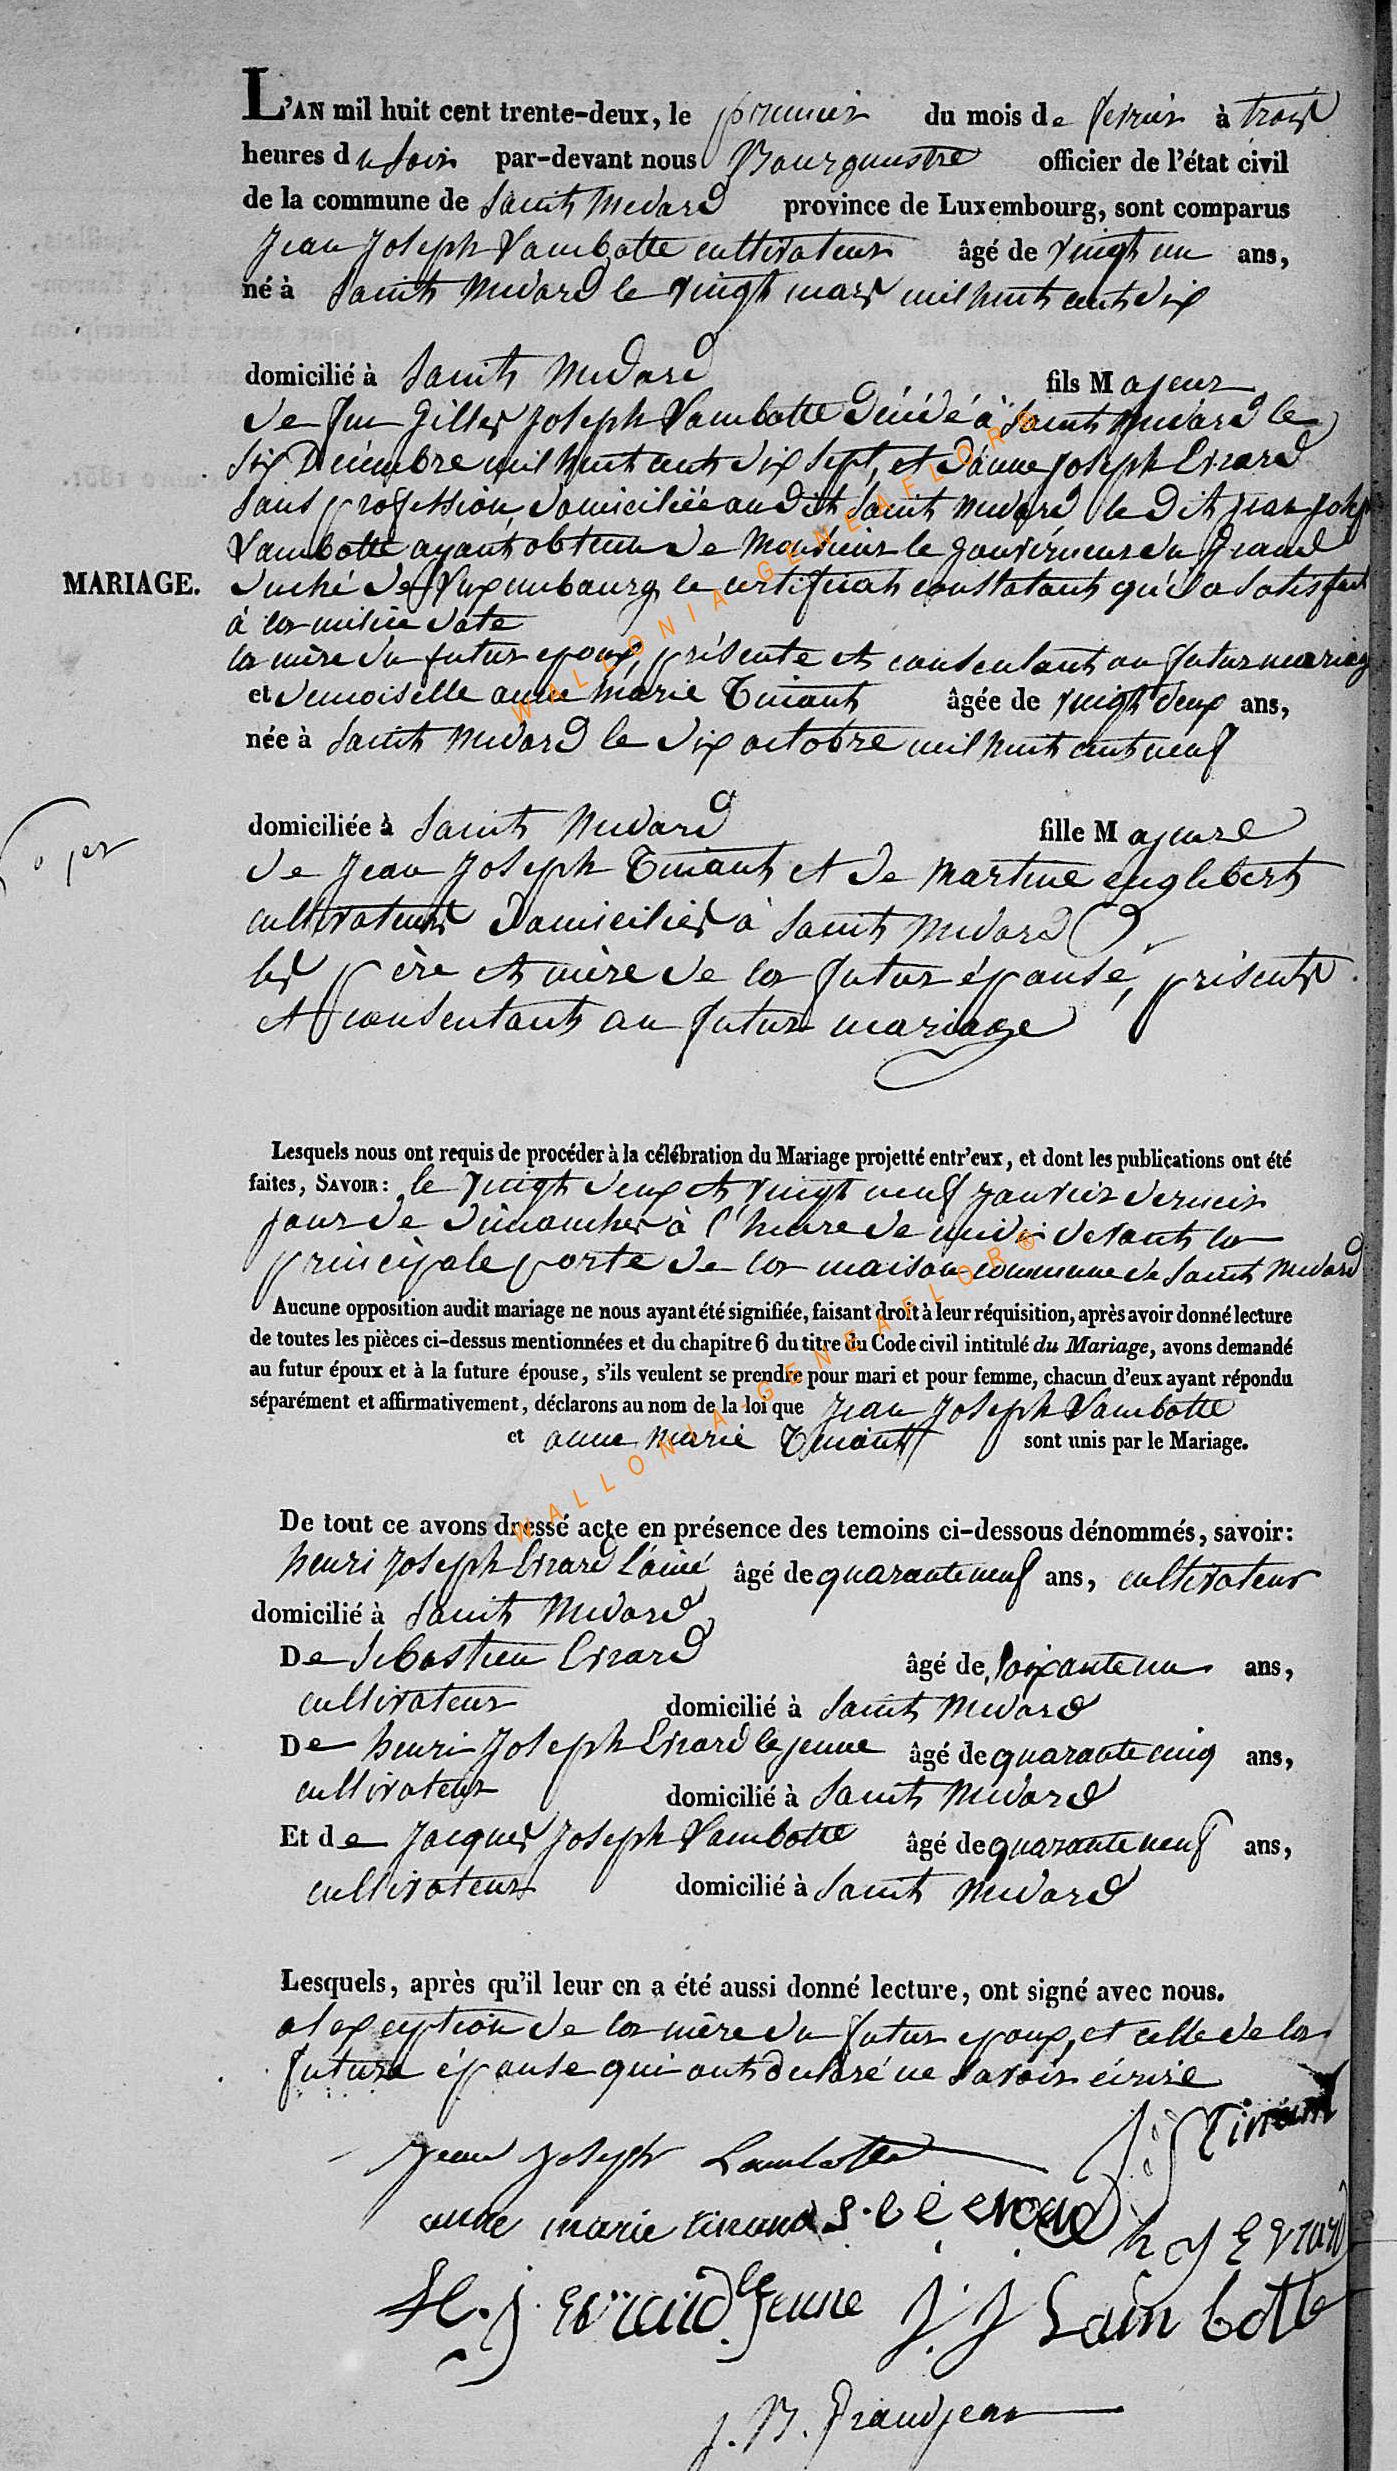 L'AN mil huit cent trente-deux, le premier du mois de fevrier à trois
heures du soir par-devant nous Bourguestre officier de l'état civil
de la commune de Saint Medard province de Luxembourg, sont comparus
Jean Joseph Lambotte cultivateur âgé de vingt un ans,
né à Saint Medard le vingt mars mil huit cent dix
domicilié à Saint Medard fils Majeur
de feu Gilles Joseph Lambotte décédé à Saint Medard le
six Décembre mil huit cent dix sept, et d'anne joseph Evrard
sans profession, domiciliée au dit Saint Medard le dit jean joseph
Lambotte ayant obtenu de Monsieur le gouverneur du grand
MARIAGE. duché de Luxembourg le certificat constatant qu'il a satisfait
à la milice date
la mère du futur epoux, présente et consentant au futur mariage
et demoiselle anne marie Tinant âgée de vingt deux ans,
née à Saint Medard le dix octobre mil huit cent neuf
domiciliée à Saint Medard fille Majeure
de Jean Joseph Tinant et de Martine englebert
cultivateurs domiciliés à Saint Medard
les père et mère de la futur épouse, présents
et consentants au futur mariage
Lesquels nous ont requis de procéder à la célébration du Mariage projetté entr'eux, et dont les publications ont été
faites, SAVOIR: le vingt deux et vingt neuf janvier dernier
jour de dimanches à l'heure de midi devant la
principale porte de la maison commune de Saint Medard
Aucune opposition audit mariage ne nous ayant été signifiée, faisant droit à leur réquisition, après avoir donné lecture
de toutes les pièces ci-dessus mentionnées et du chapitre 6 du titre du Code civil intitulé du Mariage, avons demandé
au futur époux et à la future épouse, s'ils veulent se prendre pour mari et pour femme, chacun d'eux ayant répondu
séparément et affirmativement, déclarons au nom de la loi que Jean Joseph Lambotte
et anne marie Tinant sont unis par le Mariage.
De tout ce avons dressé acte en présence des temoins ci-dessous dénommés, savoir:
henri Joseph Evrard l'ainé âgé de quarante neuf ans, cultivateur
domicilié à Saint Medard
De Sebastien Evrard âgé de soixante un ans,
cultivateur domicilié à Saint Medard
De henri Joseph Evrard le jeune âgé de quarante cinq ans,
cultivateur domicilié à Saint Medard
Et de Jacques Joseph Lambotte âgé de quarante neuf ans,
cultivateur domicilié à Saint Medard
Lesquels, après qu'il leur en a été aussi donné lecture, ont signé avec nous.
al exception de la mère du futur epoux, et celle de la
future épouse qui ont declaré ne savoir écrire
J: J Tinant
Jean Joseph Lambotte
anne marie tinant
h J Evrard
H. J. Evrard le Jeune J. J Lambotte
J. B. Grandjean
WALLONIA-GENEAFLOR®
WALLONIA-GENEAFLOR®